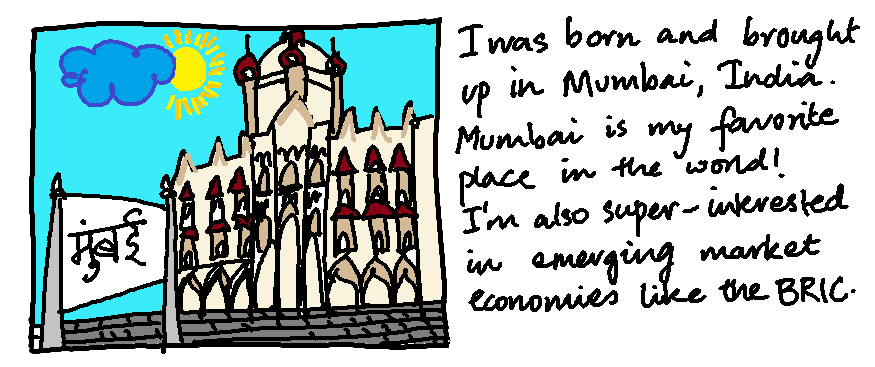 मुंबई
I was born and brought
up in Mumbai, India.
Mumbai is my favorite
place in the world!
I'm also super-interested
in emerging market
economies like the BRIC.